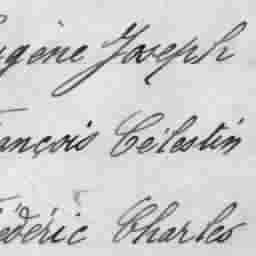 ugène Joseph
ançois Célestin
édéric Charles